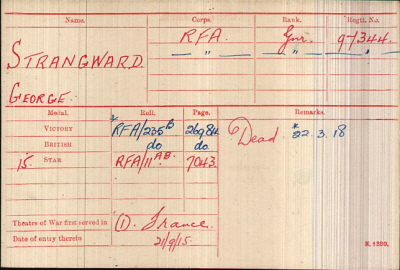 Name. Corps. Rank. Regtl. No.
STRANGWARD. RFA. Gnr. 97344.
" " " "
GEORGE.
Medal. Roll. Page. Remarks.
VICTORY *RFA/235B 26984 Dead *22.3.18
BRITISH do do
15 STAR RFA/11AB. 7043.
Theatre of War first served in (1). France.
Date of entry therein 21/9/15.
K. 1380.